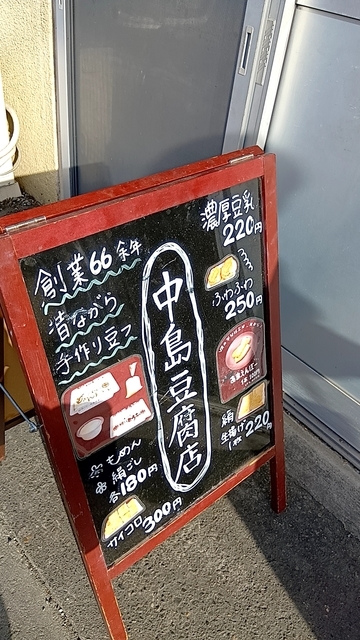 濃厚豆乳
220円
創業66余年
昔ながら
手作り豆フ
中島豆腐店
ふわふわ
250円
もめん
絹ごし
各180円
サイコロ
300円
絹
生揚げ
220円